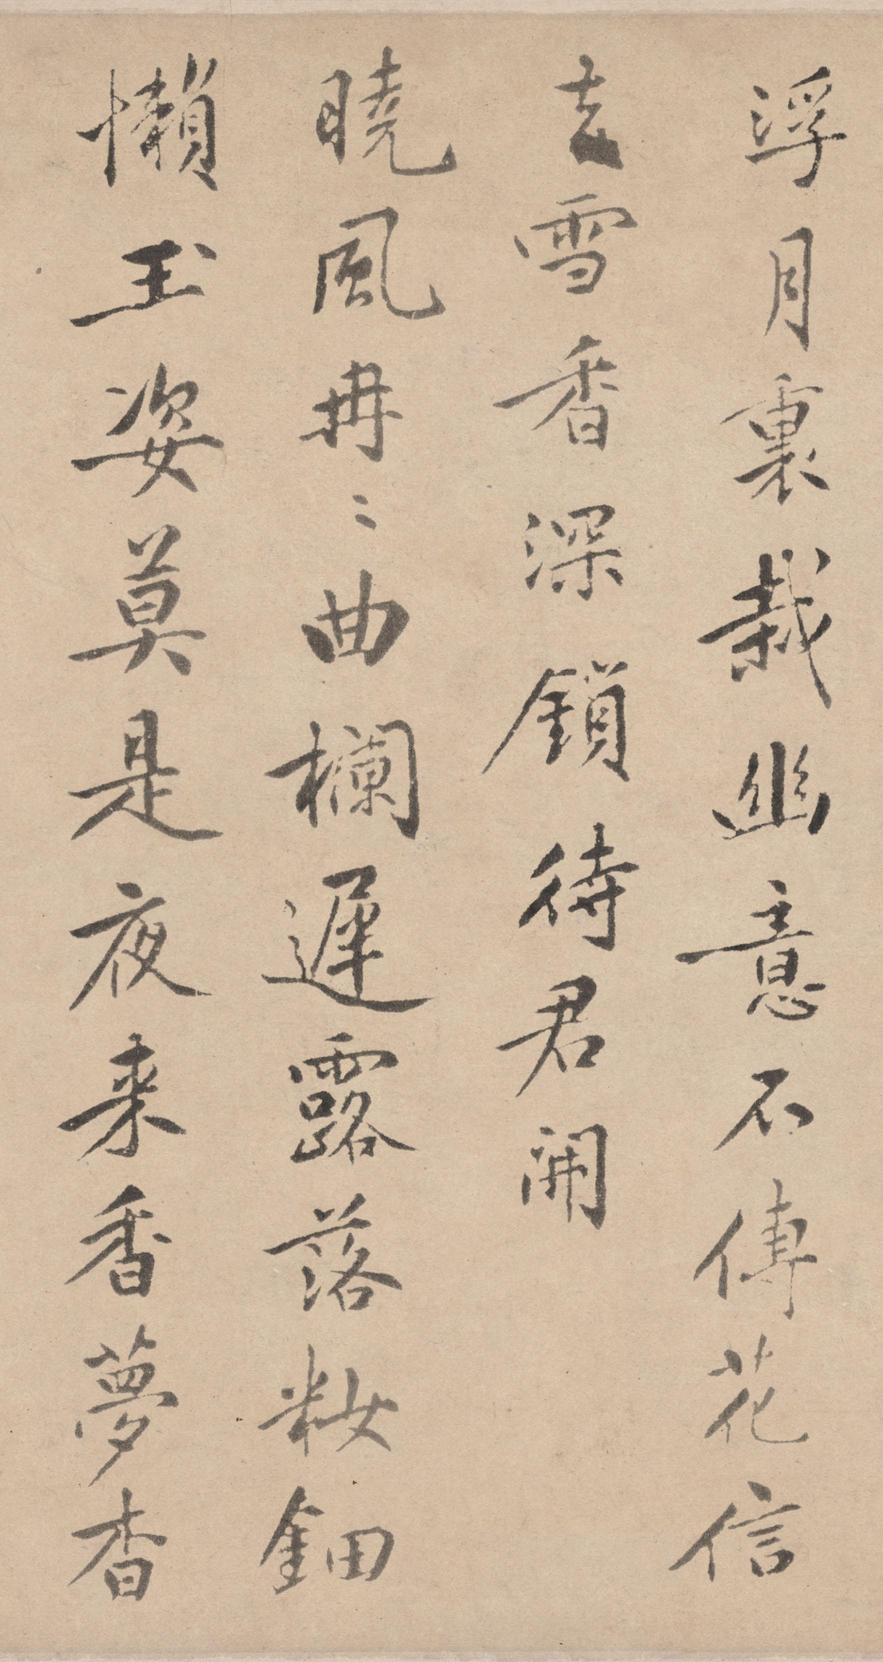 浮月裏栽幽意不傳花信
去雪香深鎖待君開
曉風冉〻曲欄遲露落粧鈿
懶玉姿莫是夜来香夢杳